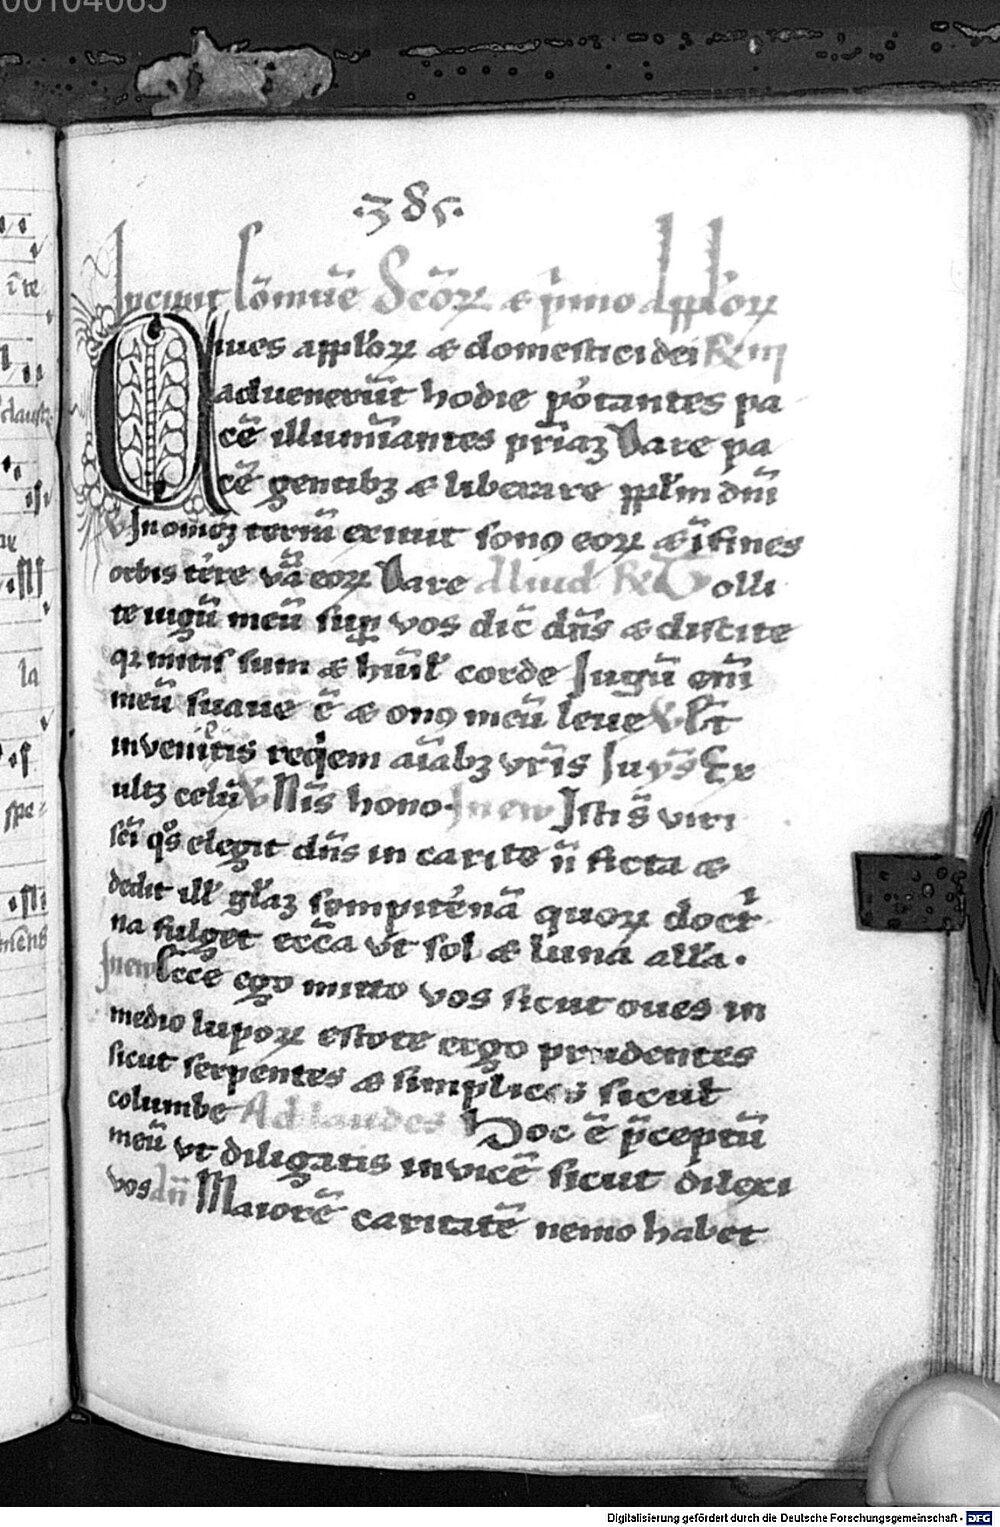 00104065
.385.
Incipiūt cōmūe Scōꝝ & p̄mo Applōꝝ
Ciues applōꝝ & domestici dei
aduenerūt hodie portantes pa
cē illumīantes priaʒ Dare pa
cē gentibʒ & liberare ppl̄m dn̄i
V In omēʒ terrā exiuit sonꝰ eoꝝ & ī fines
orbis tere vā eoꝝ Dare Aliud R Tolli
te iugū meū sup vos dic̄ dn̄s & discite
qꝛ mitis sum & hūil̄ corde Iugū em̄
meū suaue ē & onꝰ meū leue V Et
invenietis reqem aīabʒ vrīs Iu ys Ex
ultʒ celū V Nīs hono. In ew Isti s̄ viri
scī qos elegit dn̄s in caritate n̄ ficta &
dedit ill̄ gl̄aʒ sempiternā quoꝝ doctri
na fulget ecc̄a vt sol & luna all̄a.
In ew Ecce ego mitto vos sicut oues in
medio lupoꝝ estote ergo prudentes
sicut serpentes & simplices sicut
columbe Ad laudes Hoc ē p̄ceptū
meū vt diligatis invicē sicut dilexi
vos an̄ Maiorē caritatē nemo habet
Digitalisierung gefördert durch die Deutsche Forschungsgemeinschaft - DFG